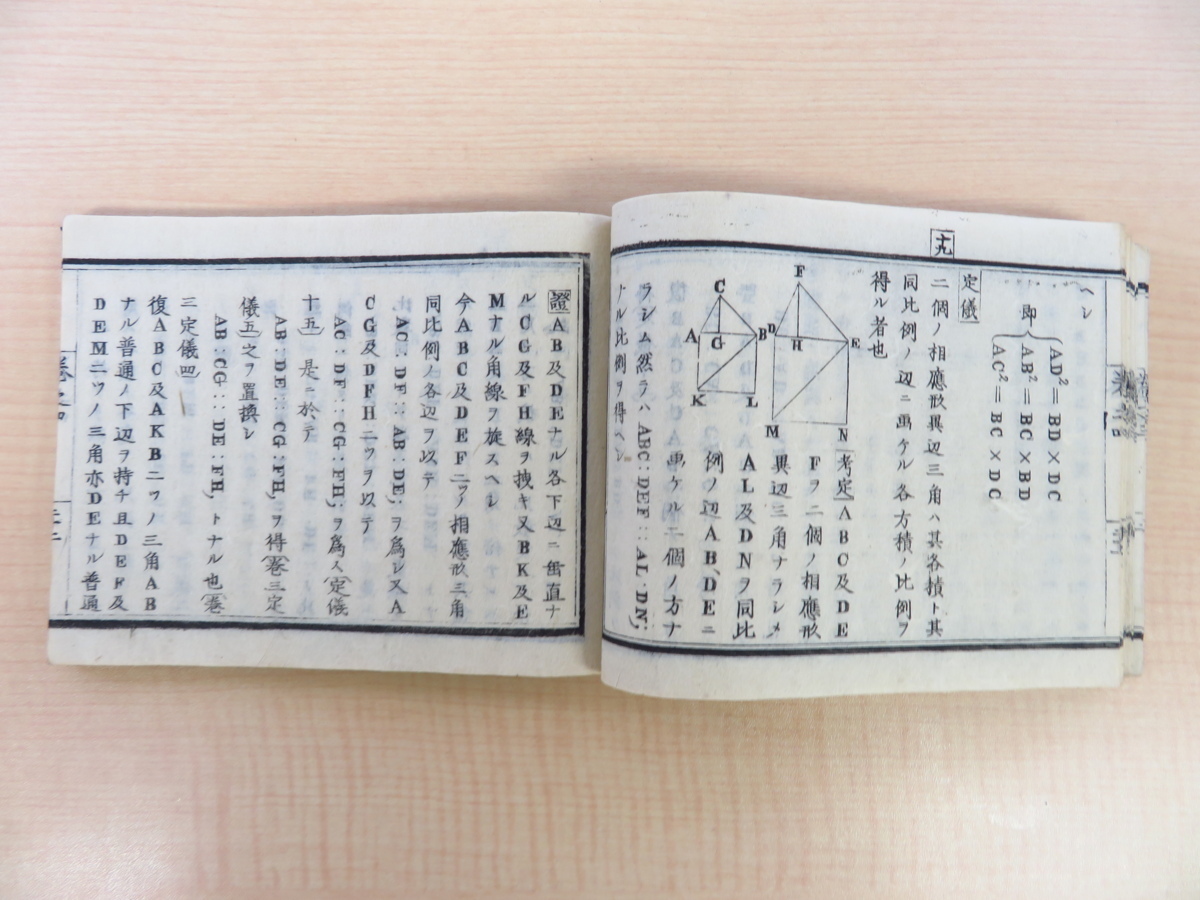 十九
ヘシ
即
AD²=BD×DC
AB²=BC×BD
AC²=BC×DC
定儀
二個ノ相應形異辺三角ハ其各積ト其
同比例ノ辺ニ畫ケル各方積ノ比例ヲ
得ル者也
F
D
H
E
M
N
C
A
G
B
K
L
考定ABC及DE
Fヲ二個ノ相應形
異辺三角ナラシメ
AL及DNヲ同比
例ノ辺AB、DEニ
畫ケル二個ノ方ナ
ラシム然ラハABC:DEF::AL:DN;
ナル比例ヲ得ヘシ
證AB及DEナル各下辺ニ垂直ナ
ルCG及FH線ヲ拽キ又BK及E
Mナル角線ヲ旋スヘシ
今ABC及DEF二ツノ相應形三角
同比例ノ各辺ヲ以テ
AC:DF::AB:DE;ヲ爲シ又A
CG及DFH二ツヲ以テ
AC:DF::CG:FH;ヲ爲ス(定儀
十五)是ニ於テ
AB:DE::CG:FH,ヲ得(卷三定
儀五)之ヲ置換シ
AB:CG::DE:FH,トナル也(卷
三定儀四)
復ABC及AKB二ツノ三角AB
ナル普通ノ下辺ヲ持チ且DEF及
DEM二ツノ三角亦DEナル普通